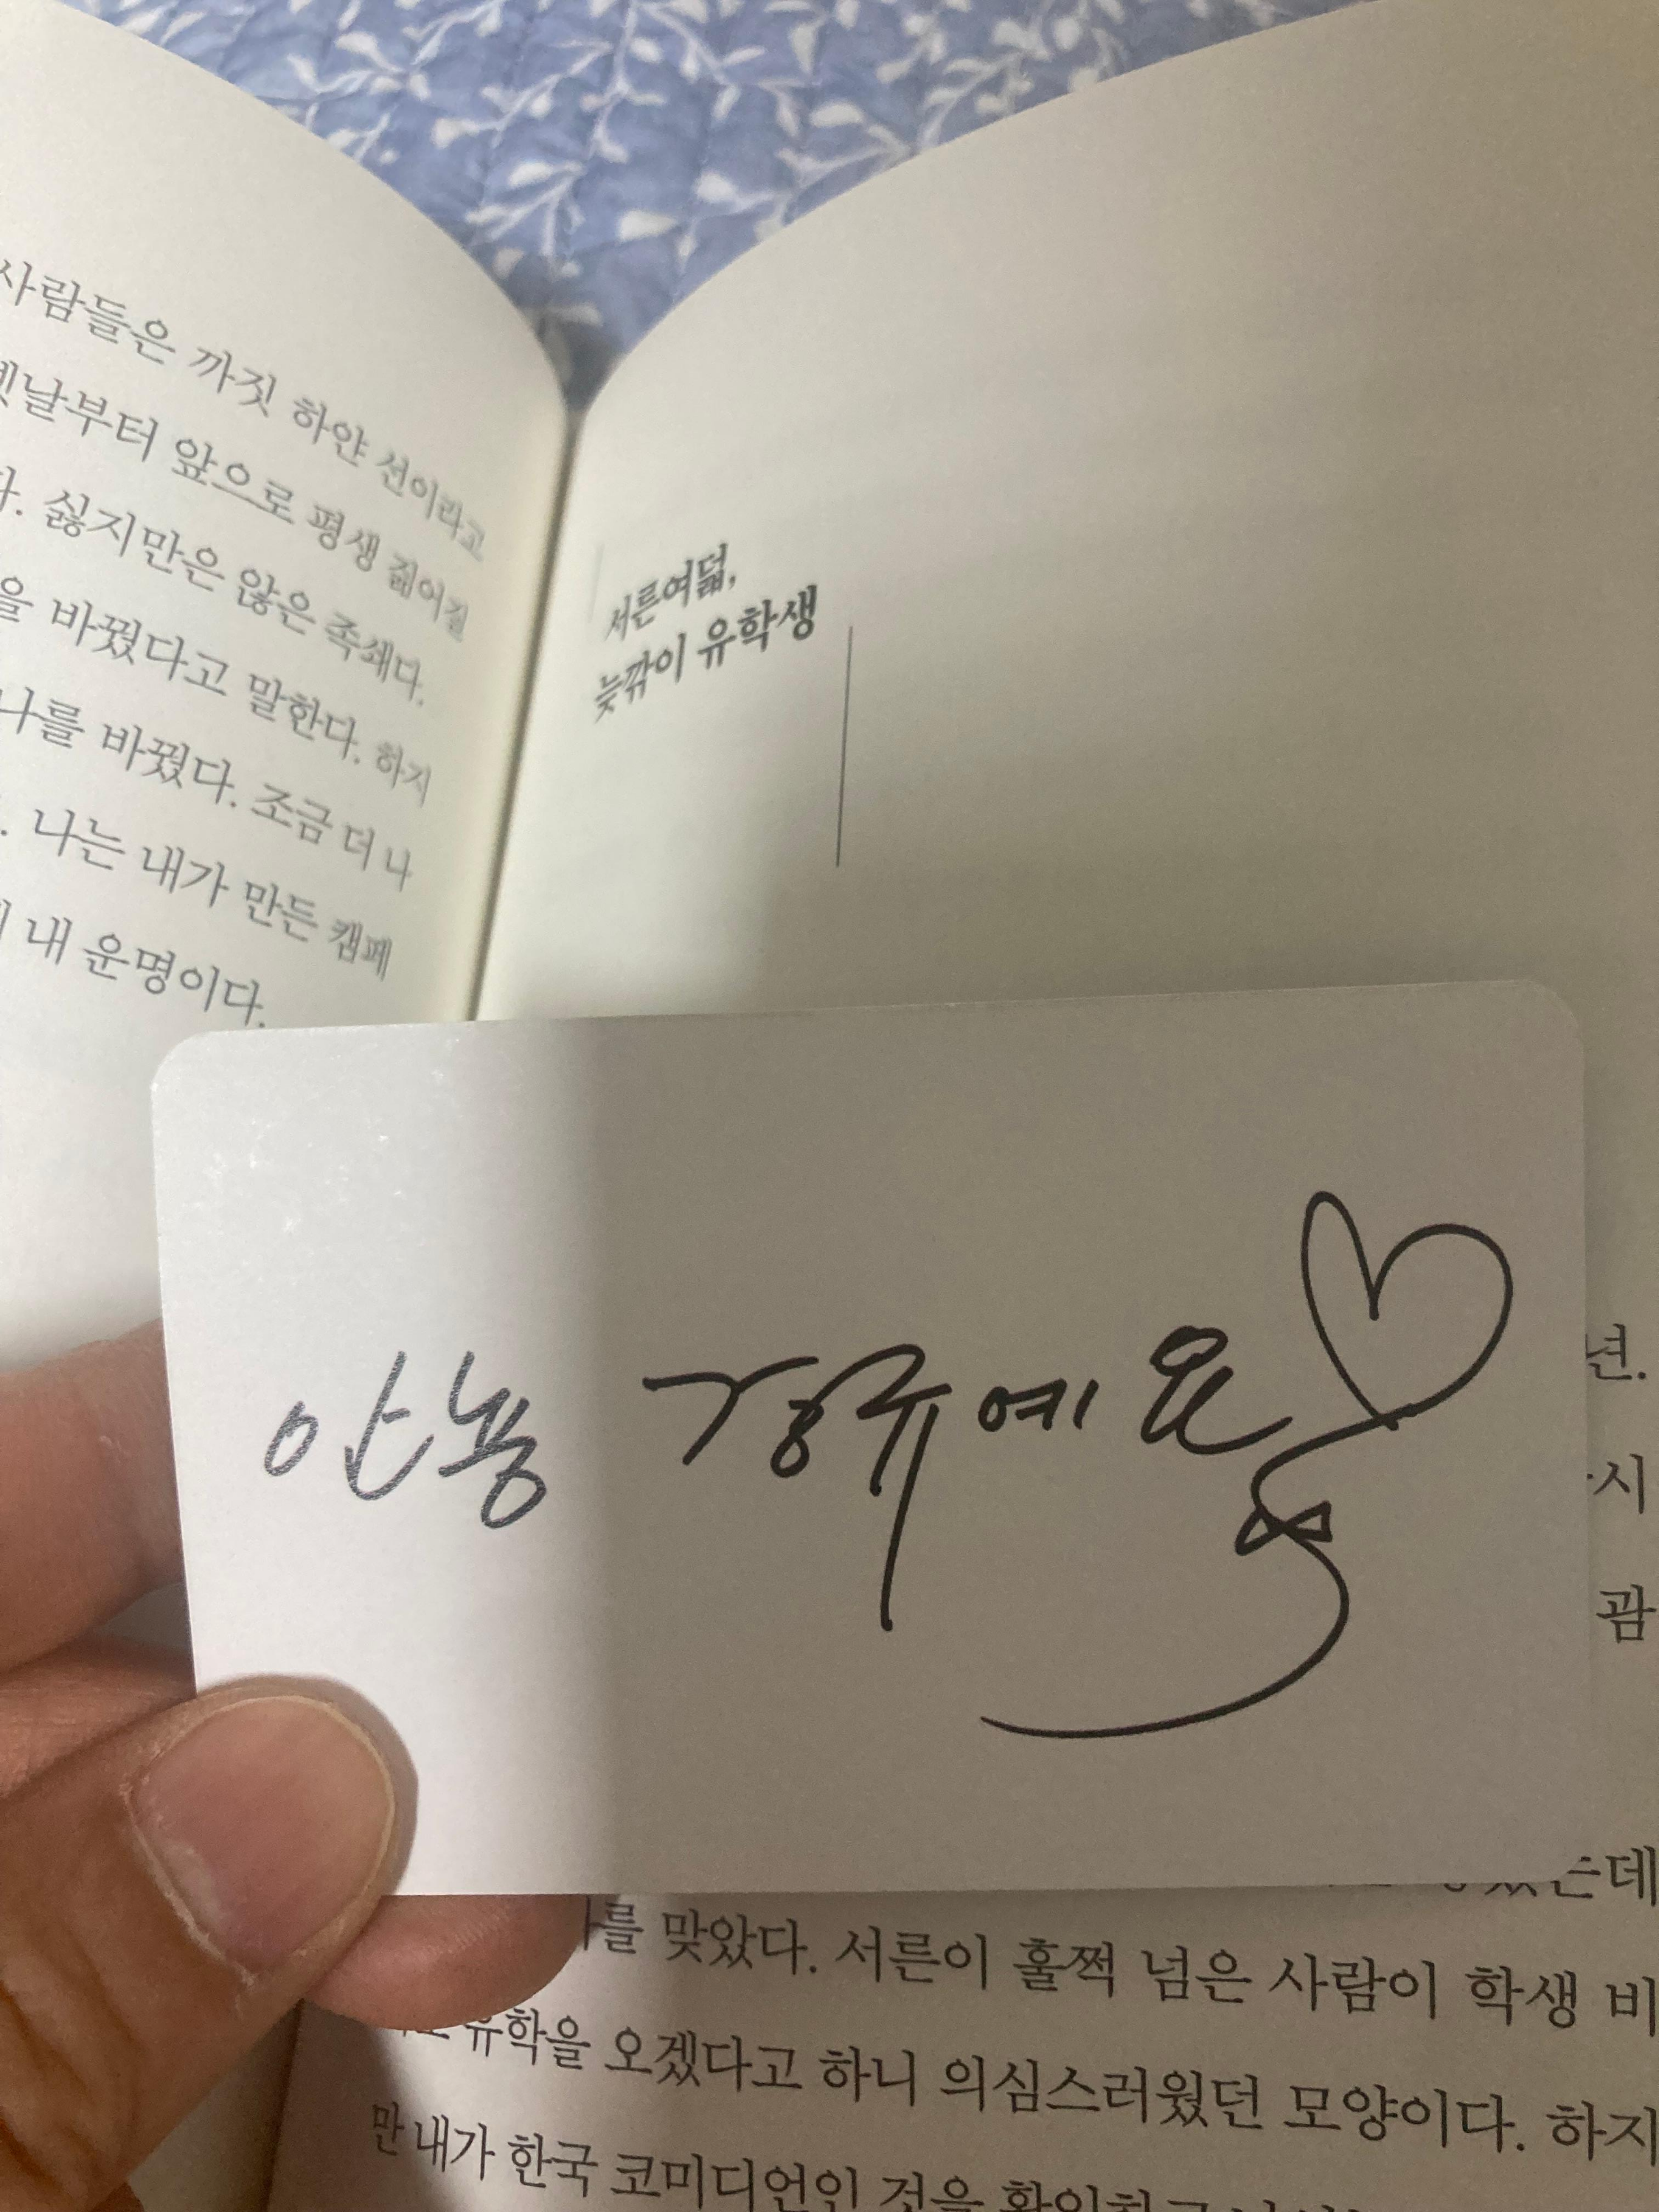 사람들은 까짓 하얀 선이라고
옛날부터 앞으로 평생 짊어질
다. 싫지만은 않은 족쇄다.
을 바꿨다고 말한다. 하지
나를 바꿨다. 조금 더 나
. 나는 내가 만든 캠페
내 운명이다.
서른여덟,
늦깎이 유학생
안뇽 경규예요
년.
시
괌
는데
를 맞았다. 서른이 훌쩍 넘은 사람이 학생 비
유학을 오겠다고 하니 의심스러웠던 모양이다. 하지
만 내가 한국 코미디언인 것을